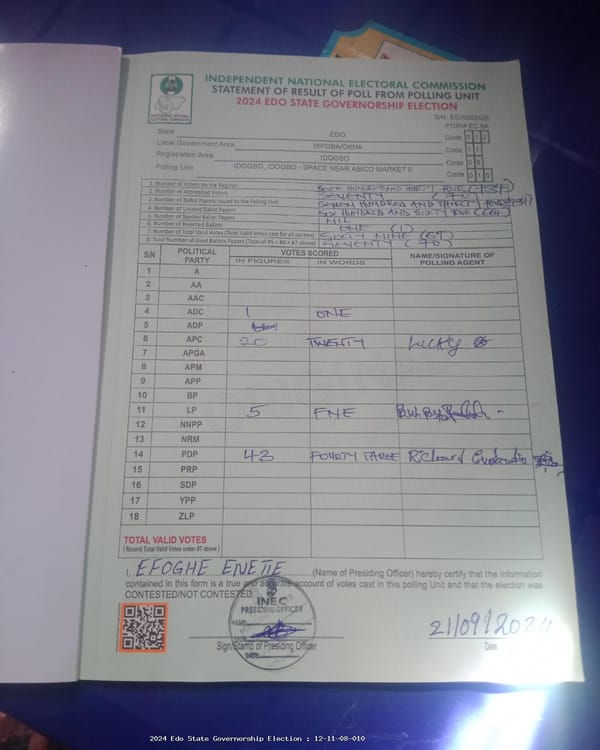 INDEPENDENT NATIONAL ELECTORAL COMMISSION
STATEMENT OF RESULT OF POLL FROM POLLING UNIT
2024 EDO STATE GOVERNORSHIP ELECTION
S/N: EG/0002525
FORM EC 8A
State EDO Code 012
Local Government Area IKPOBA/OKHA Code 11
Registration Area IDOGBO Code 08
Polling Unit IDOGBO, IDOGBO - SPACE NEAR ABICO MARKET II Code 010
1. Number of Voters on the Register
2. Number of Accredited Voters SEVENTY (70)
3. Number of Ballot Papers Issued to the Polling Unit SEVEN HUNDRED AND THIRTY
4. Number of Unused Ballot Papers SIX HUNDRED AND SIXTY ONE
5. Number of Spoiled Ballot Papers NIL
6. Number of Rejected Ballots ONE (1)
7. Number of Total Valid Votes (Total Valid Votes cast for all parties) SIXTY NINE (69)
8. Total Number of Used Ballots Papers (Total of #5 + #6 + #7 above) SEVENTY (70)
S/N POLITICAL PARTY VOTES SCORED NAME/SIGNATURE OF POLLING AGENT
IN FIGURES IN WORDS
1 A
2 AA
3 AAC
4 ADC 1 ONE
5 ADP
6 APC 20 TWENTY Lucky
7 APGA
8 APM
9 APP
10 BP
11 LP 5 FIVE
12 NNPP
13 NRM
14 PDP 43 FOURTY THREE Richard
15 PRP
16 SDP
17 YPP
18 ZLP
TOTAL VALID VOTES
(Record Total Valid Votes under #7 above)
I, EFOGHE ENETIE (Name of Presiding Officer) hereby certify that the information
contained in this form is a true and accurate account of votes cast in this polling Unit and that the election was
CONTESTED/NOT CONTESTED
INEC
PRESIDING OFFICER
NAME:
DATE:
21/09/2024
Sign/Stamp of Presiding Officer Date
2024 Edo State Governorship Election : 12-11-08-010